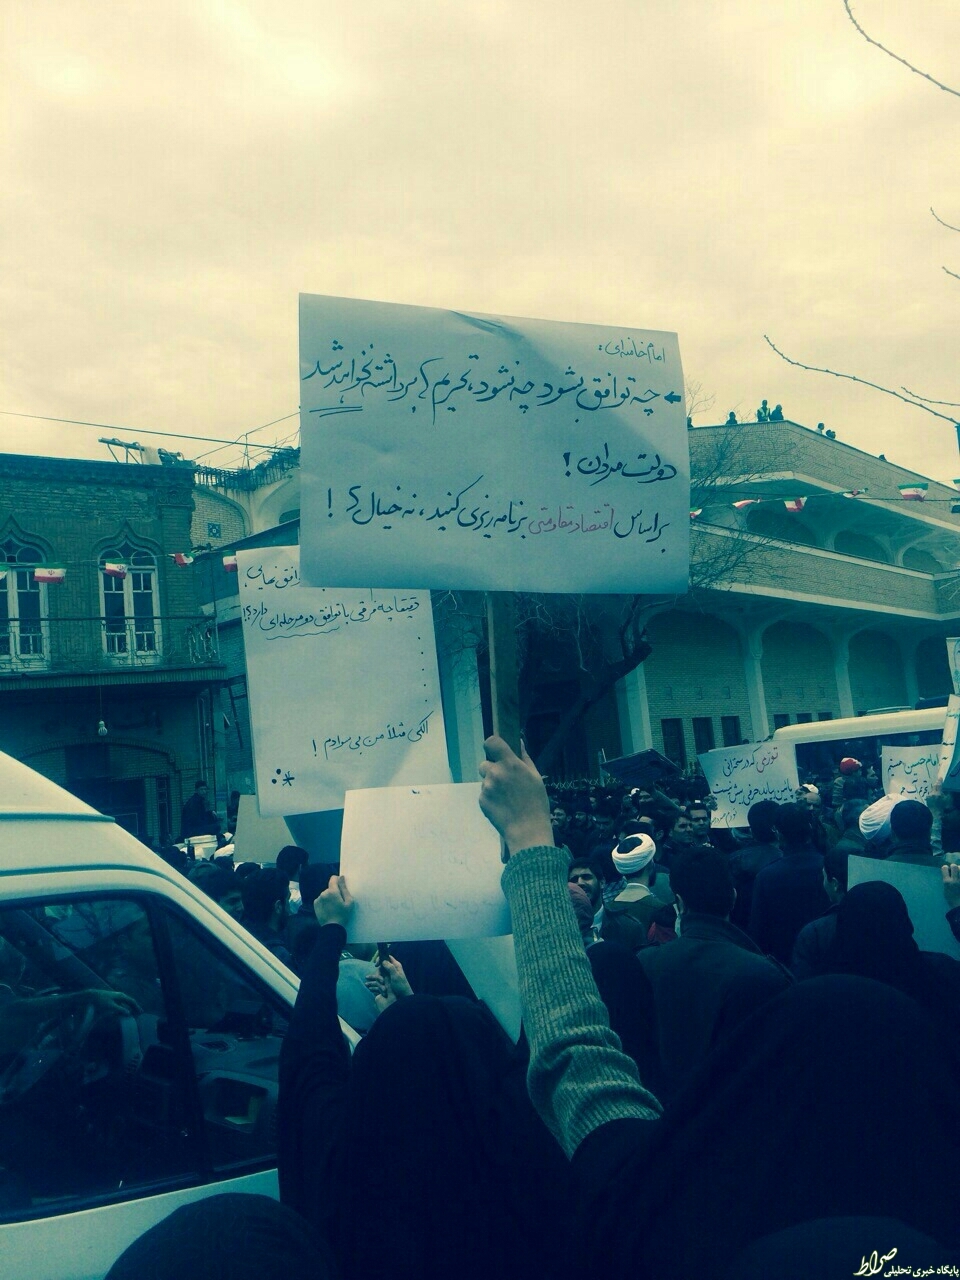 امام خامنه‌ای:
← چه توافق بشود چه نشود، تحریم‌ها برداشته نخواهد شد
دولت مردان!
بر اساس اقتصاد مقاومتی برنامه‌ریزی کنید، نه خیال‌ها!
توافق نهایی
دقیقا چه فرقی با توافق دو مرحله‌ای دارد؟!
الکی مثلاً من بی سوادم!
توری که در سخنرانی
امام حسین
صراط
پایگاه خبری تحلیلی